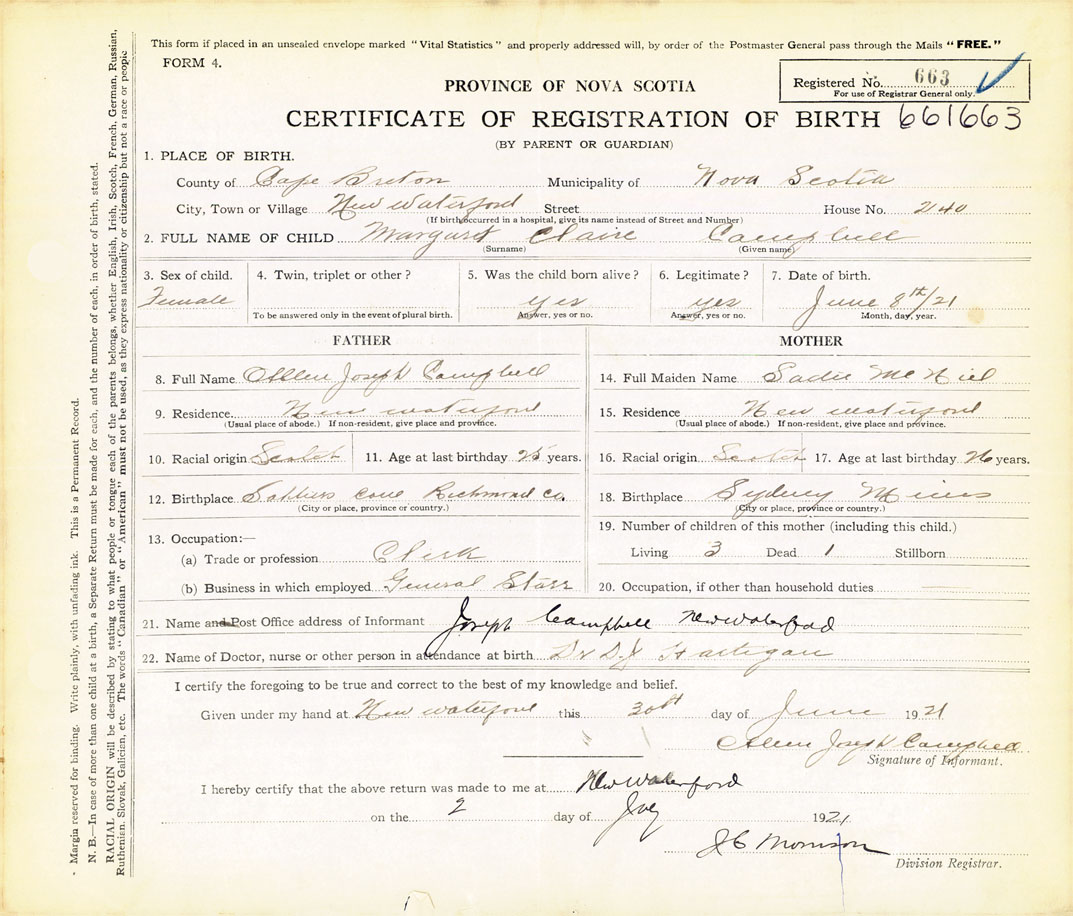 This form if placed in an unsealed envelope marked "Vital Statistics" and properly addressed will, by order of the Postmaster General pass through the Mails "FREE."
FORM 4.
Registered No. 663
For use of Registrar General only.
PROVINCE OF NOVA SCOTIA
CERTIFICATE OF REGISTRATION OF BIRTH 661663
(BY PARENT OR GUARDIAN)
1. PLACE OF BIRTH.
County of Cape Breton Municipality of Nova Scotia
City, Town or Village New Waterford Street House No. 2140
(If birth occurred in a hospital, give its name instead of Street and Number)
2. FULL NAME OF CHILD Margaret Claire Campbell
(Surname) (Given name)
3. Sex of child. 4. Twin, triplet or other? 5. Was the child born alive? 6. Legitimate? 7. Date of birth.
Female yes yes June 8th/21
To be answered only in the event of plural birth. Answer, yes or no. Answer, yes or no. Month, day, year.
FATHER
8. Full Name Allen Joseph Campbell
9. Residence New waterford
(Usual place of abode.) If non-resident, give place and province.
10. Racial origin Scotch 11. Age at last birthday years.
12. Birthplace cove Richmond Co.
(City or place, province or country.)
13. Occupation:—
(a) Trade or profession Clerk
(b) Business in which employed General Starr
MOTHER
14. Full Maiden Name Sadie McNiel
15. Residence New waterford
(Usual place of abode.) If non-resident, give place and province.
16. Racial origin Scotch 17. Age at last birthday 26 years.
18. Birthplace Sydney Mines
(City or place, province or country.)
19. Number of children of this mother (including this child.)
Living 3 Dead 1 Stillborn
20. Occupation, if other than household duties
21. Name and Post Office address of Informant Joseph Campbell New Waterford
22. Name of Doctor, nurse or other person in attendance at birth Dr D.J. Hartigan
I certify the foregoing to be true and correct to the best of my knowledge and belief.
Given under my hand at New waterford this 30th day of June 1921
Allen Joseph Campbell
Signature of Informant.
I hereby certify that the above return was made to me at New Waterford
on the 2 day of July 1921
J C Morrison
Division Registrar.
- Margin reserved for binding. Write plainly, with unfading ink. This is a Permanent Record.
N. B.—In case of more than one child at a birth, a Separate Return must be made for each, and the number of each, in order of birth, stated.
RACIAL ORIGIN will be described by stating to what people or tongue each of the parents belongs, whether English, Irish, Scotch, French, German, Russian,
Ruthenian, Slovak, Galician, etc. The words "Canadian" or "American" must not be used, as they express nationality or citizenship but not a race or people